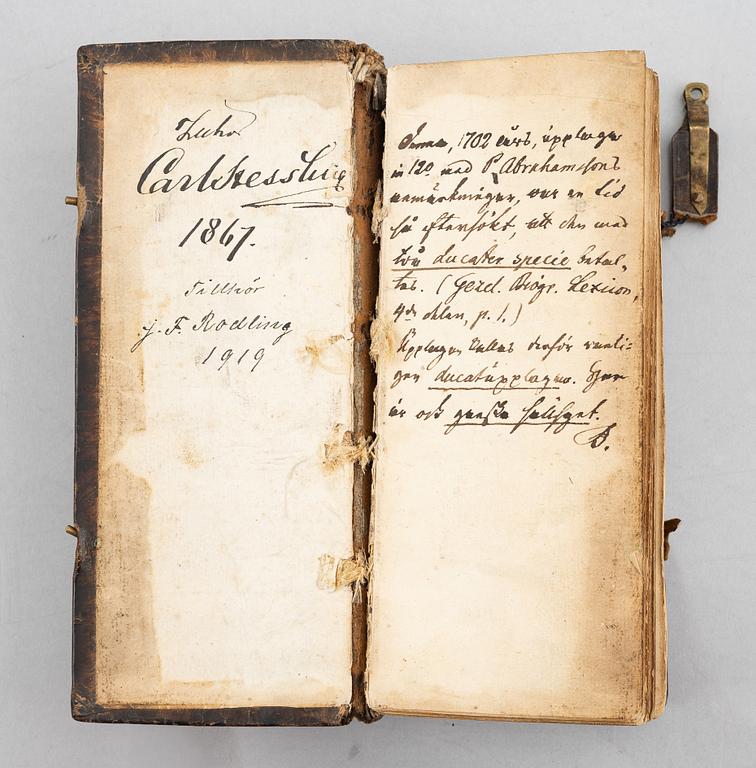 Carl Hessling
1867.
Tillhör
J. F. Rodling
1919
Denna, 1702 års, upplaga
in 12o med P. Abrahamssons
anmärkningar, var en tid
så eftersökt, att den med
två ducater specie betal-
tes. (Gezel. Biogr. Lexicon,
4de delen, p. 1.)
Upplagan kallas derför vanli-
gen ducatupplagan. Hon
är ock ganska sällsynt.
B.